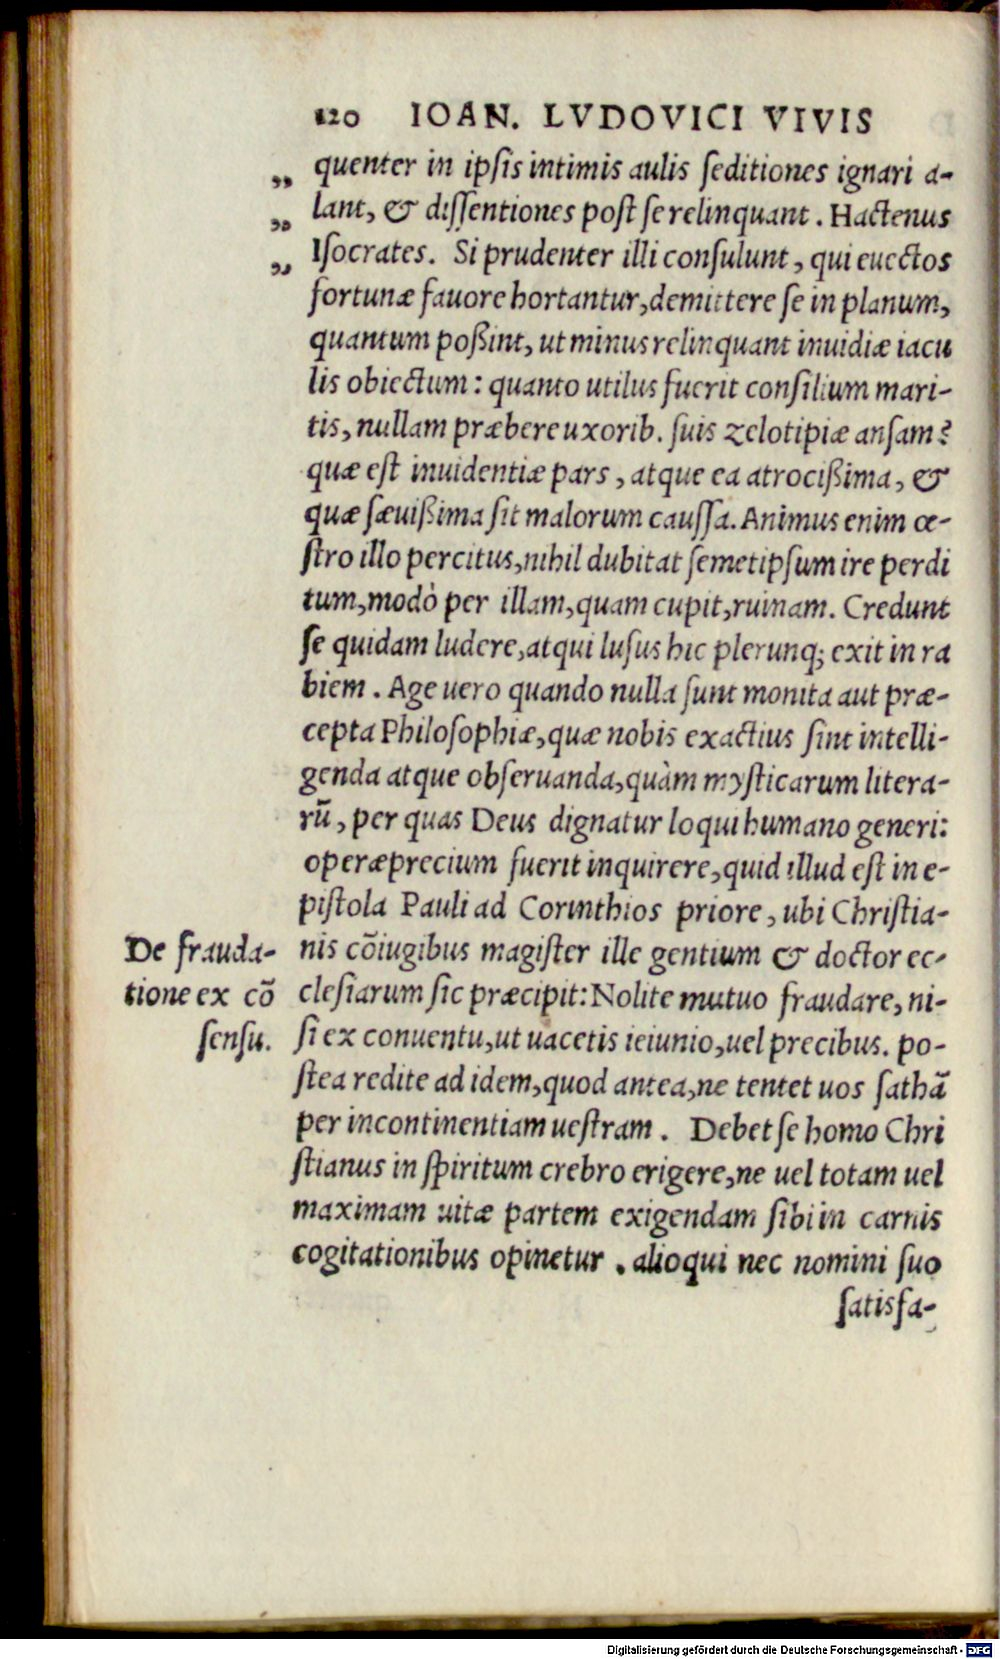 120 IOAN. LVDOVICI VIVIS
„ quenter in ipſis intimis aulis ſeditiones ignari a-
„ lant, & diſſentiones poſt ſe relinquant. Hactenus
„ Iſocrates. Si prudenter illi conſulunt, qui euectos
fortunæ fauore hortantur, demittere ſe in planum,
quantum poßint, ut minus relinquant inuidiæ iacu
lis obiectum: quanto utilus fuerit conſilium mari-
tis, nullam præbere uxorib. ſuis zelotipiæ anſam?
quæ eſt inuidentiæ pars, atque ea atrocißima, &
quæ ſæuißima ſit malorum cauſſa. Animus enim œ-
ſtro illo percitus, nihil dubitat ſemetipſum ire perdi
tum, modò per illam, quam cupit, ruinam. Credunt
ſe quidam ludere, atqui luſus hic plerunq; exit in ra
biem. Age uero quando nulla ſunt monita aut præ-
cepta Philoſophiæ, quæ nobis exactius ſint intelli-
genda atque obſeruanda, quàm myſticarum litera-
rū, per quas Deus dignatur loqui humano generi:
operæprecium fuerit inquirere, quid illud eſt in e-
piſtola Pauli ad Corinthios priore, ubi Chriſtia-
De frauda-
tione ex cō
ſenſu.
nis cōiugibus magiſter ille gentium & doctor ec-
cleſiarum ſic præcipit: Nolite mutuo fraudare, ni-
ſi ex conuentu, ut uacetis ieiunio, uel precibus. po-
ſtea redite ad idem, quod antea, ne tentet uos ſathā
per incontinentiam ueſtram. Debet ſe homo Chri
ſtianus in ſpiritum crebro erigere, ne uel totam uel
maximam uitæ partem exigendam ſibi in carnis
cogitationibus opinetur. alioqui nec nomini ſuo
ſatisfa-
Digitalisierung gefördert durch die Deutsche Forschungsgemeinschaft - DFG